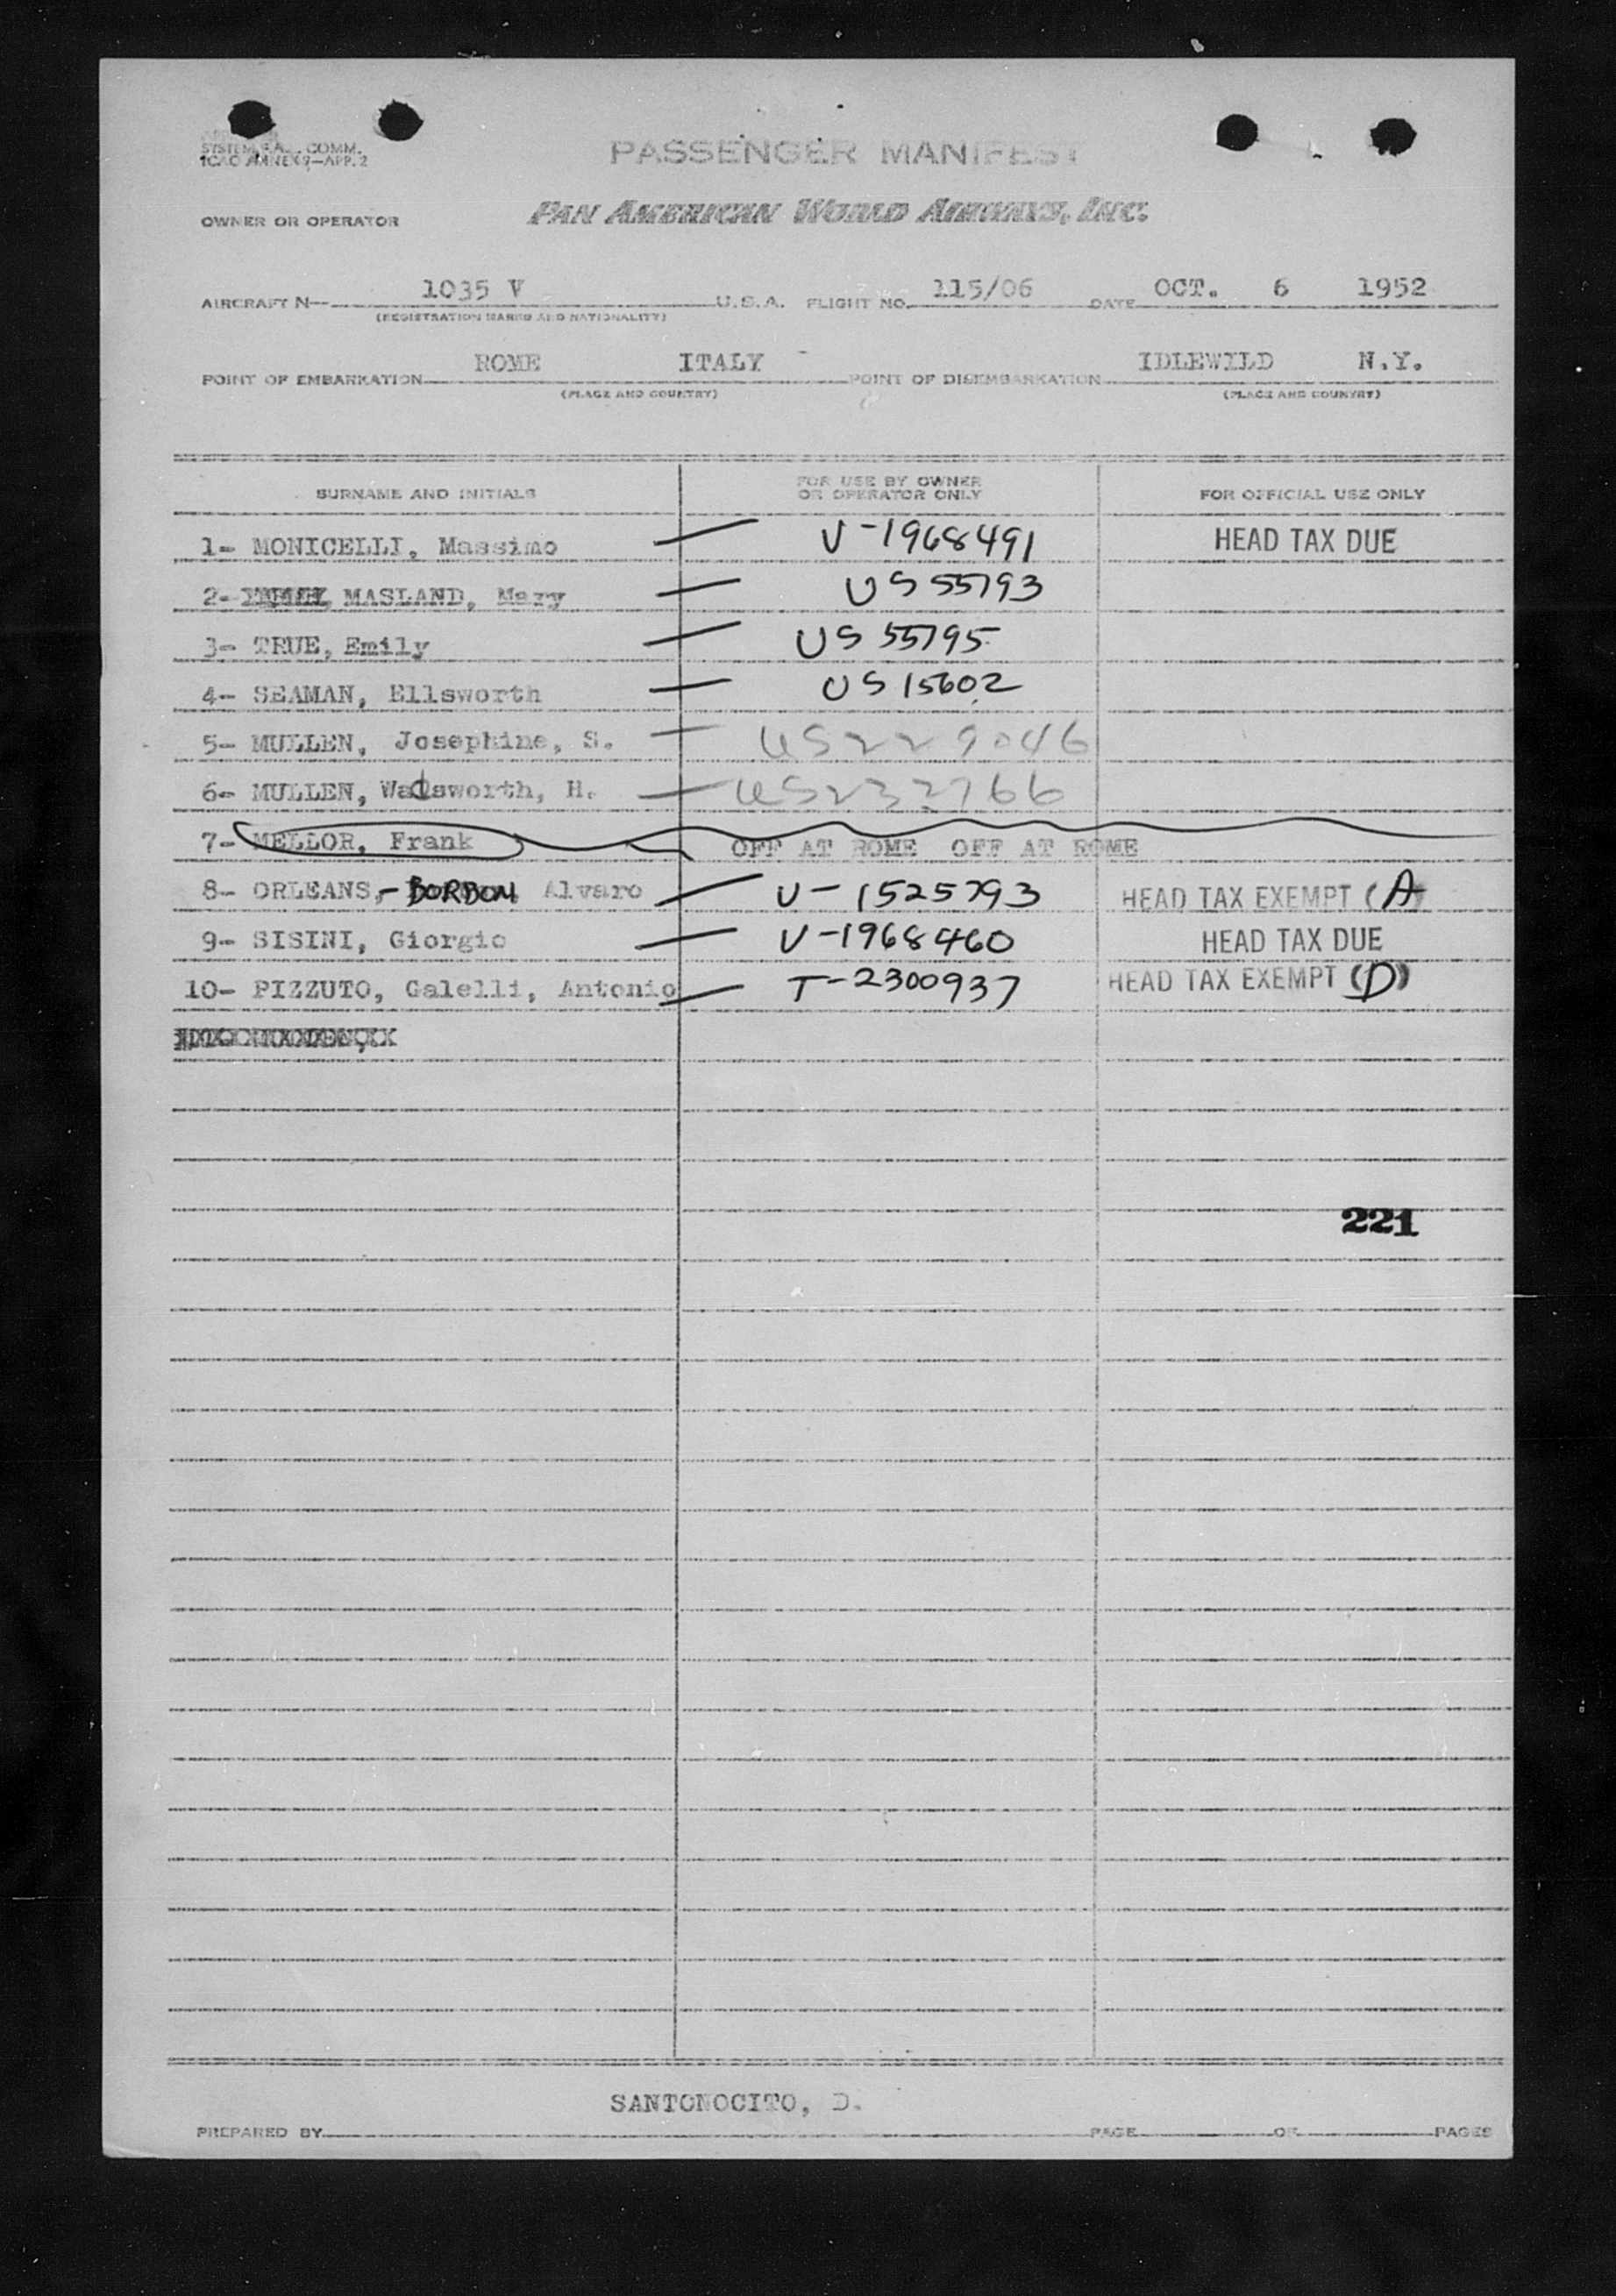 SYSTEM, F.A., COMM.
ICAO ANNEX 9—APP. 2
PASSENGER MANIFEST
OWNER OR OPERATOR PAN AMERICAN WORLD AIRWAYS, INC.
AIRCRAFT N— 1035 V U.S.A. FLIGHT NO. 115/06 DATE OCT. 6 1952
(REGISTRATION MARKS AND NATIONALITY)
POINT OF EMBARKATION ROME ITALY POINT OF DISEMBARKATION IDLEWILD N.Y.
(PLACE AND COUNTRY) (PLACE AND COUNTRY)
SURNAME AND INITIALS FOR USE BY OWNER OR OPERATOR ONLY FOR OFFICIAL USE ONLY
1- MONICELLI, Massimo — V-1968491 HEAD TAX DUE
2- MASLAND, Mary — US 55793
3- TRUE, Emily — US 55795
4- SEAMAN, Ellsworth — US 15602
5- MULLEN, Josephine, S. — US229046
6- MULLEN, Wadsworth, H. — US232766
7- MELLOR, Frank OFF AT ROME OFF AT ROME
8- ORLEANS,-BORBON Alvaro — V-1525793 HEAD TAX EXEMPT (A)
9- SISINI, Giorgio — V-1968460 HEAD TAX DUE
10- PIZZUTO, Galelli, Antonio — T-2300937 HEAD TAX EXEMPT (D)
221
SANTONOCITO, D.
PREPARED BY PAGE OF PAGES